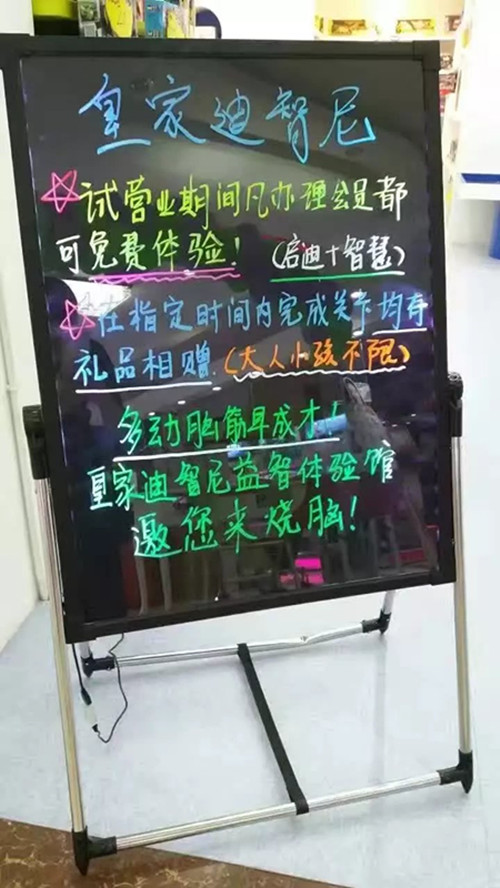 皇家迪智尼
☆试营业期间凡办理会员都
可免费体验！（启迪+智慧）
☆在指定时间内完成关卡均有
礼品相赠.（大人小孩不限）
多动脑筋早成才！
皇家迪智尼益智体验馆
邀您来烧脑！